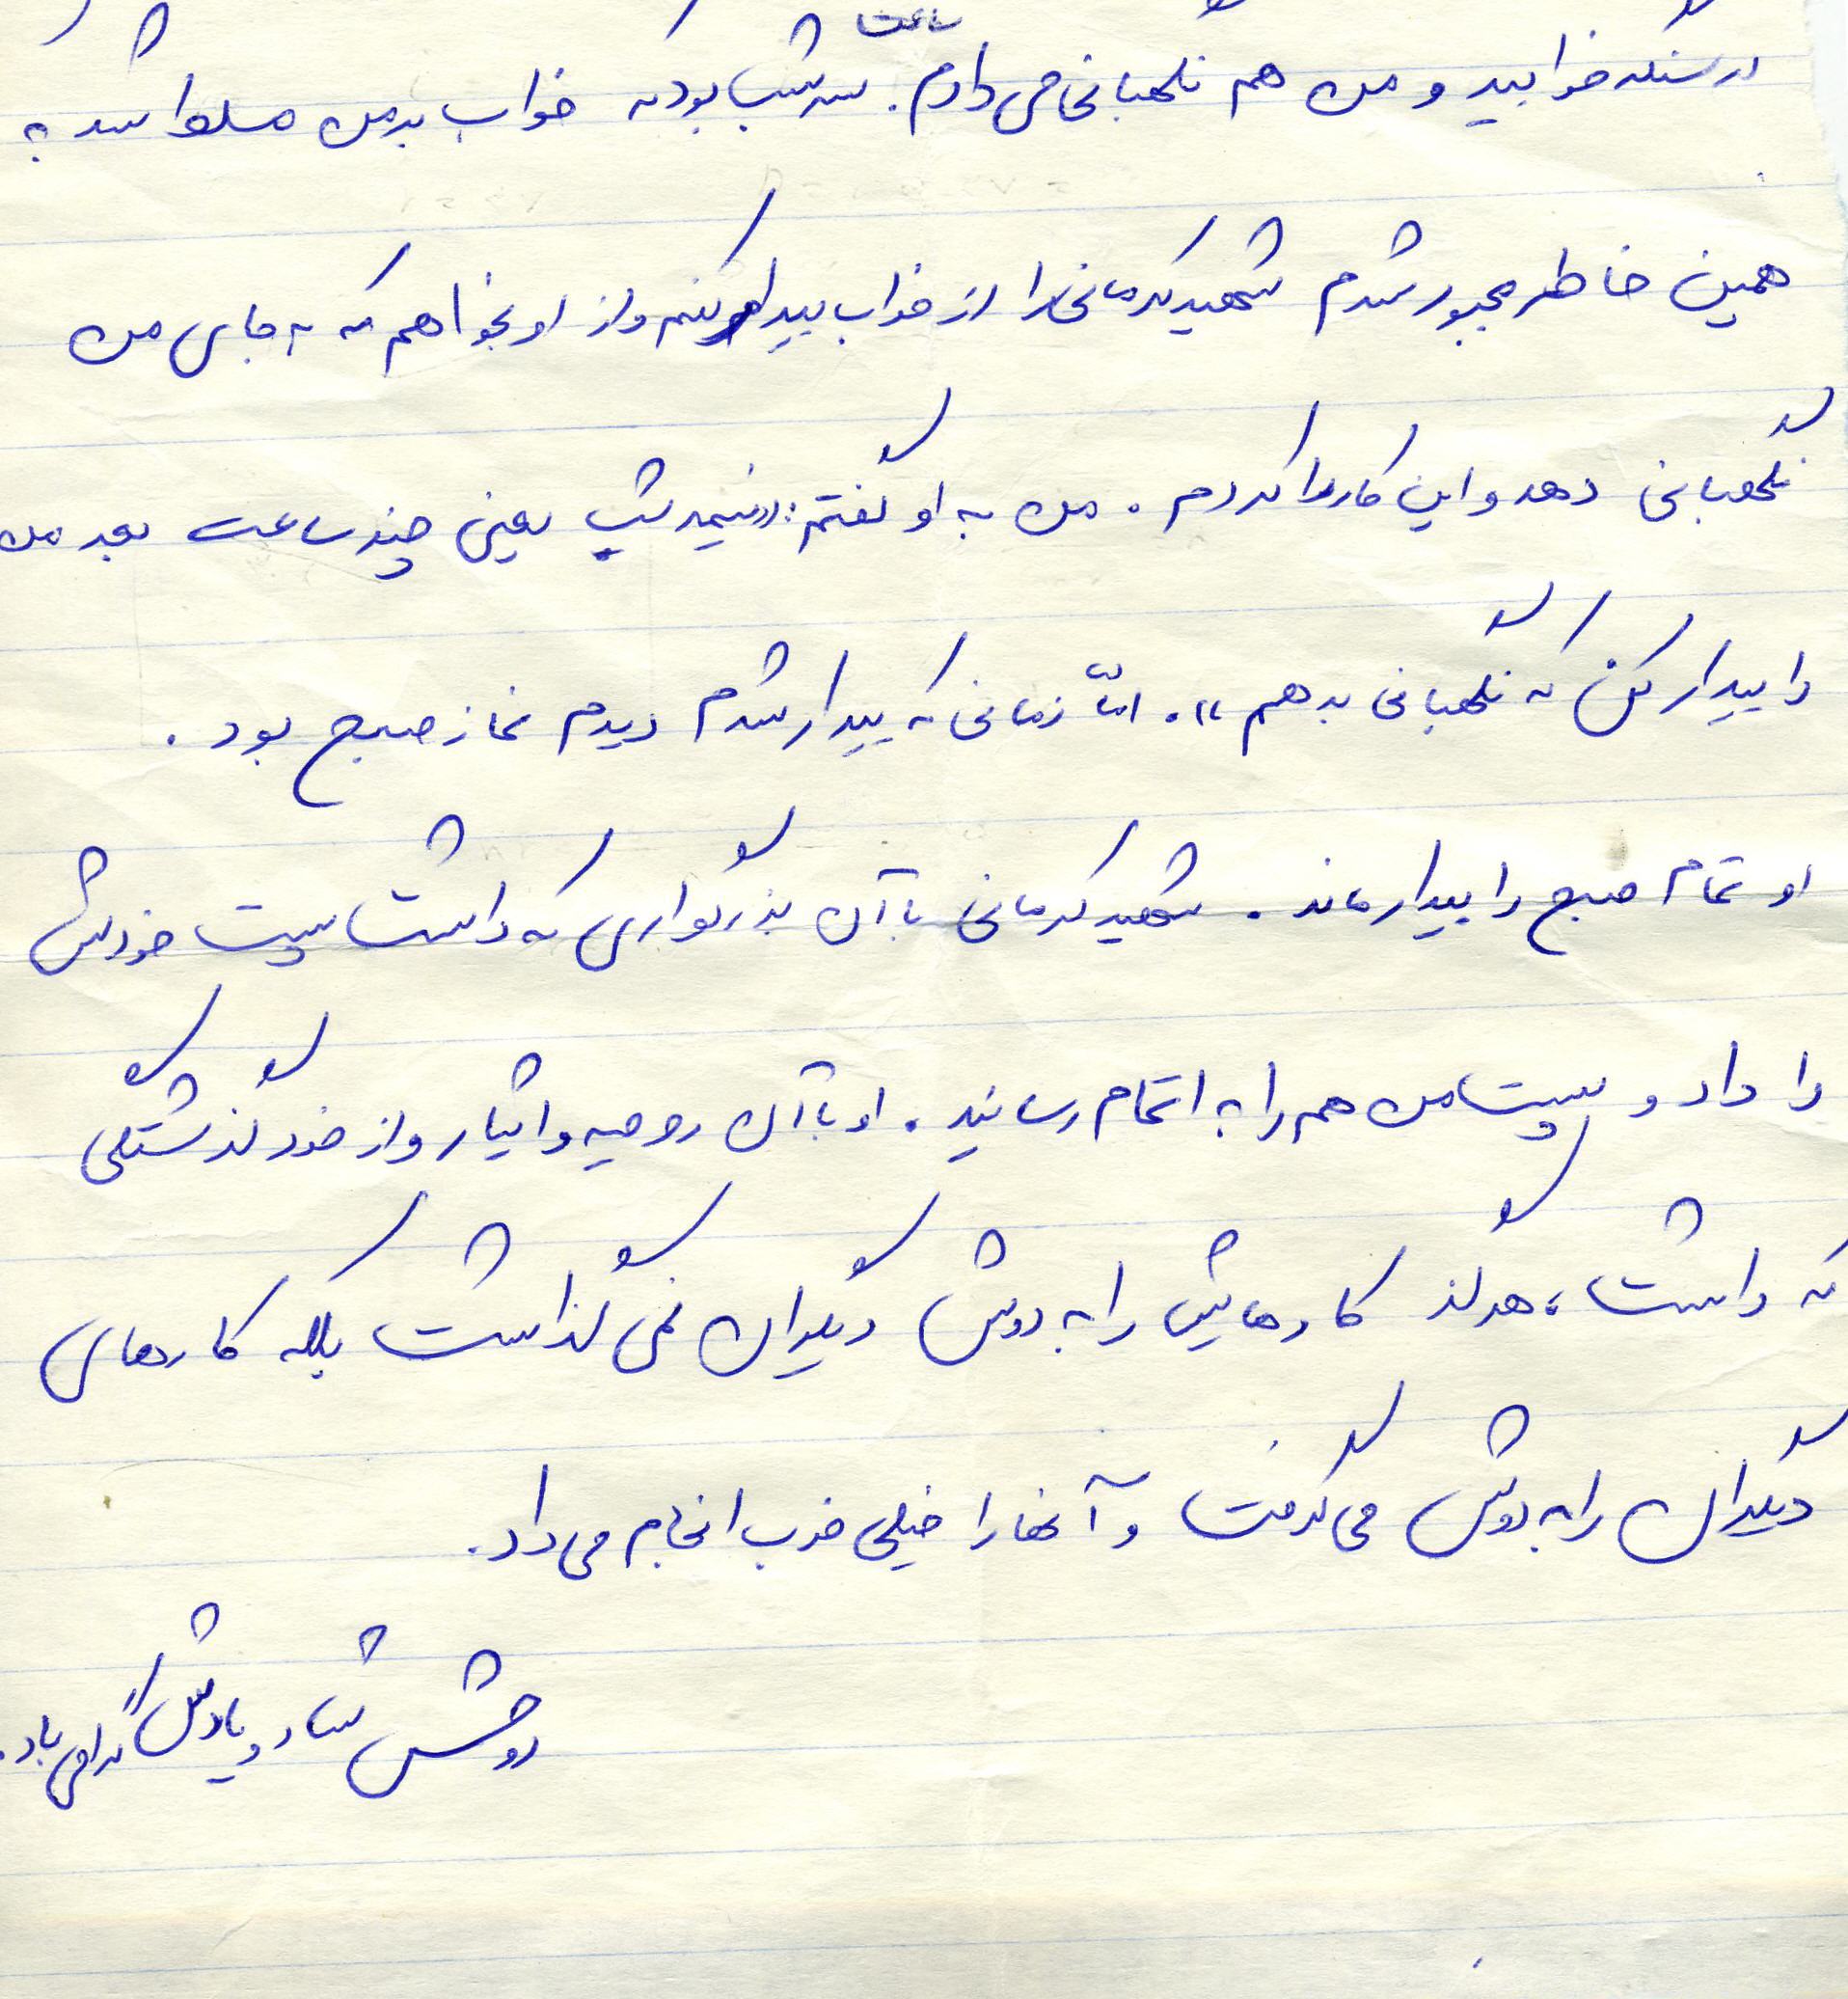 در سنگر خوابید و من هم نگهبانی می دادم. ساعت سه شب بود که خواب بر من مسلط شد به
همین خاطر مجبور شدم شهید کرمانی را از خواب بیدار کنم و از او بخواهم که به جای من
نگهبانی دهد و این کار را کردم. من به او گفتم: «نیمه شب یعنی چند ساعت بعد من
را بیدار کن که نگهبانی بدهم». امّا زمانی که بیدار شدم دیدم نماز صبح بود.
او تمام صبح را بیدار ماند. شهید کرمانی با آن بزرگواری که داشت پست خودش
را داد و پست من هم را به اتمام رسانید. او با آن روحیه و ایثار و از خود گذشتگی
که داشت، هرگز کارهایش را به دوش دیگران نمی گذاشت بلکه کارهای
دیگران را به دوش می گرفت و آنها را خیلی خوب انجام می داد.
روحش شاد و یادش گرامی باد.